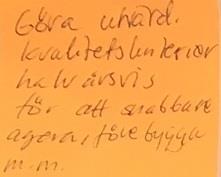 Göra utvärd.
kvalitetskriterier
halvårsvis
för att snabbare
agera, förebygga
m.m.